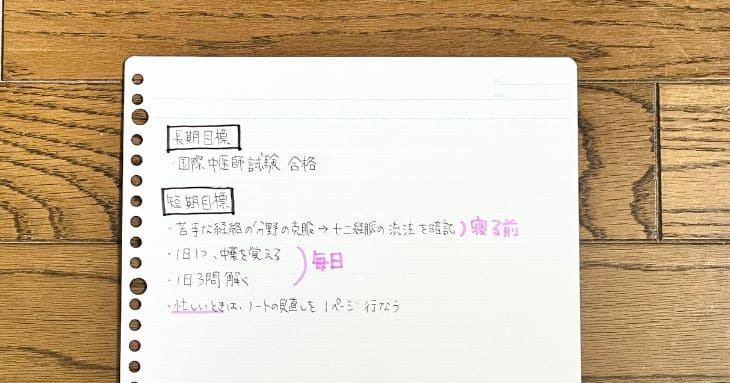 長期目標
・国際中医師試験 合格
短期目標
・苦手な経絡の分野の克服→十二経脈の流注を暗記 ) 寝る前
・1日1つ、中薬を覚える
・1日3問 解く ) 毎日
・忙しいときは、ノートの見直しを1ページ行なう